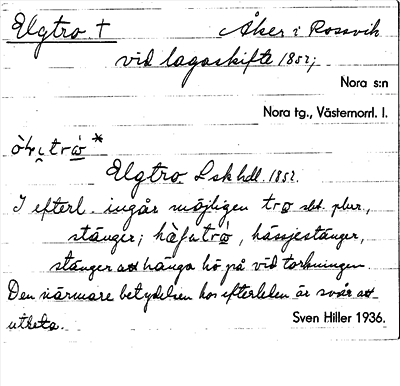 Elgtro † Åker i Rossvik
vid lagaskifte 1852;
Nora s:n
Nora tg., Västernorrl. l.
trὼ *
Elgtro. Lskhdl. 1852.
I efterl. ingår möjligen tro sbt. plur.,
stänger; hässjestänger,
stänger att hänga hö på vid torkningen.
Den närmare betydelsen hos efterleden är svår att
utleta.
Sven Hiller 1936.